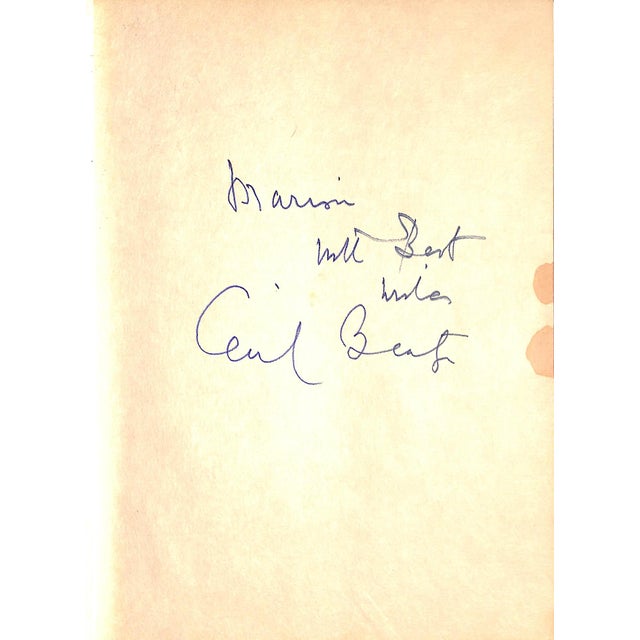 Marion
with Best
wishes
Cecil Beaton